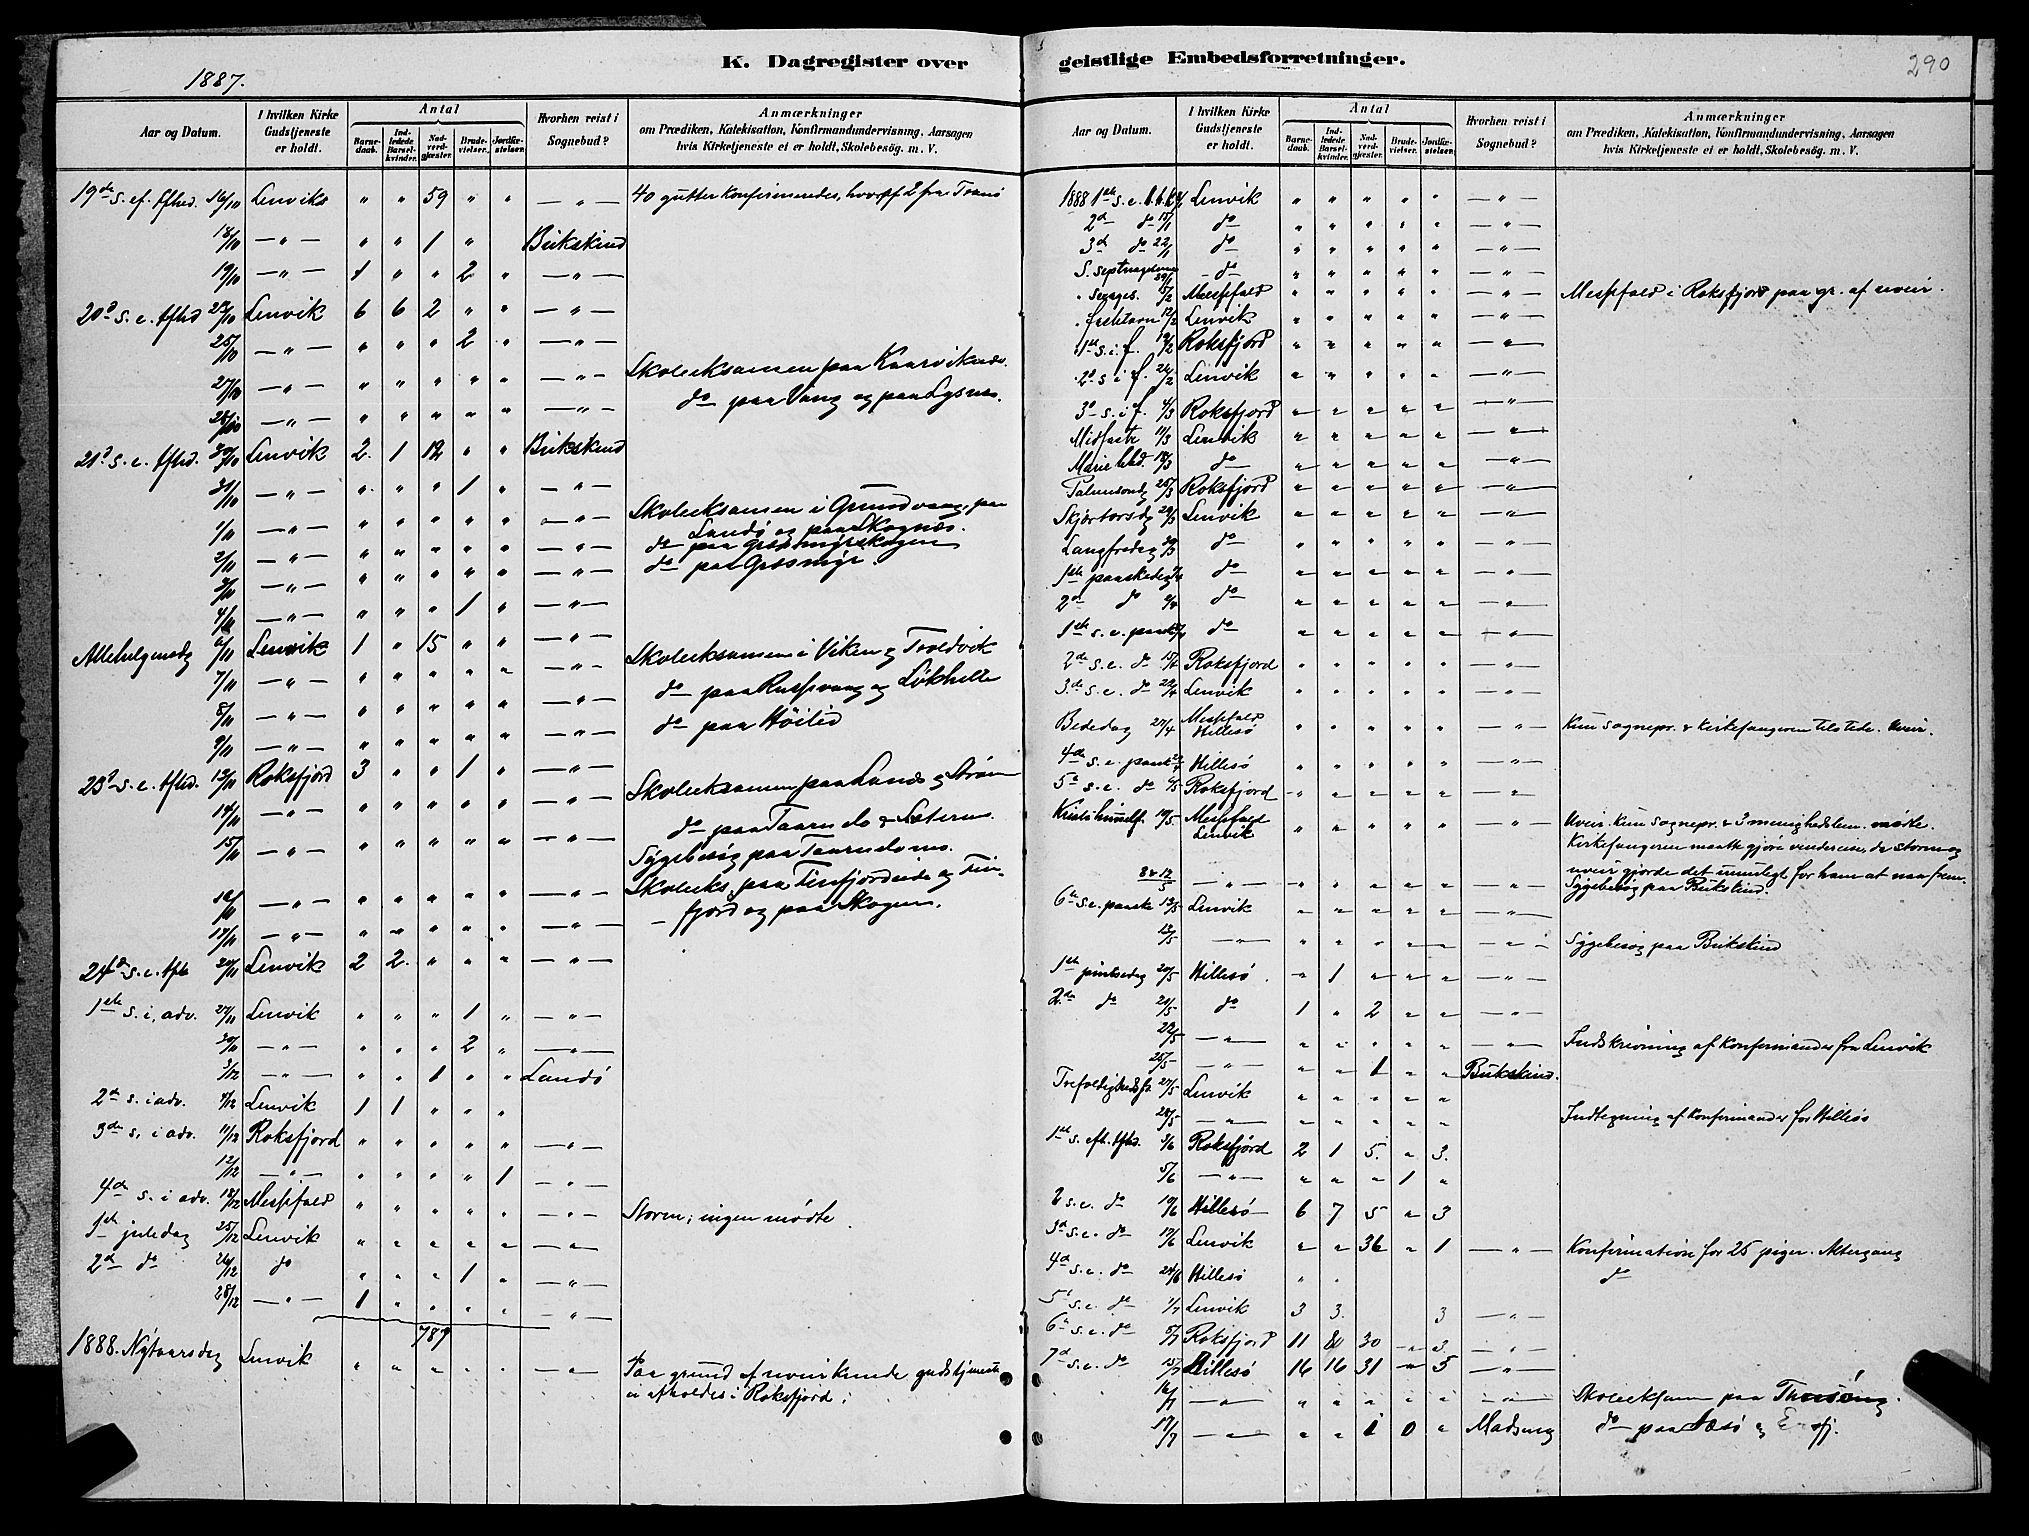 K. Dagregister over
1887.
Aar og Datum. I hvilken Kirke Gudstjeneste er holdt. Antal Hvorhen reist i Sognebud? Anmærkninger
Barnedaab. Indledede Barselkvinder. Nadverdgjester. Brudevielser. Jordfæstelser. om Prædiken, Katekisation, Konfirmandundervisning, Aarsagen hvis Kirketjeneste ei er holdt, Skolebesög. m. V.
19de s. ef. tfhed. 16/10 Lenviks " " 59 " " — " — 40 gutter konfirmeredes, hvoraf 2 fra Tranö
18/10 — " — " " 1 " Bukskind
19/10 — " — 1 " " 2 " — " —
20d s. e. tfhed 23/10 Lenvik 6 6 2 " " — " —
25/10 — " — " " " 2 " — " —
27/10 — " — " " " " " — " — Skoleeksamen paa Kaarviknæs.
28/10 — " — " " " " " — " — do paa Vang og paa Lysnes.
21d s. e. tfhed. 30/10 Lenvik 2. 1 12 " " Bukskind
31/10 — " — " " " 1 " — " —
1/10 — " — " " " " " — " — Skoleeksamen i Grundvaag, paa
Landö og paa Skognæs.
2/10 — " — " " " " " — " — do paa Græsmyrskogen
3/10 — " — " " " " " — " — do paa Græsmyr.
4/10 — " — " " " 1 " — " —
Allehelgensdg 6/11 Lenvik 1 " 15 " " — " —
7/11 — " — " " " " " — " — Skoleeksamen i Viken og
8/11 — " — " " " " " — " — do paa Russevaag og
9/11 — " — " " " " " — " — do paa Höilid
23d s. e. tfhed. 13/11 Roksfjord 3 " " 1 " — " —
14/11 — " — " " " " " — " — Skoleeksamen paa Lanes og Ström
15/11 — " — " " " " " — " — do paa &
Sygebesög paa
16/11 — " — " " " " " — " — Skoleeks. paa Finfjordeide og Fin-
17/11 — " — " " " " " — " — fjord og paa Skogen.
24d s. e. tfh 20/11 Lenvik 2 2. " " " — " —
1ste s. i. adv. 27/11 Lenvik " " " 1 " — " —
30/11 — " — " " " 2 " — " —
3/12 — " — " " 1 " " Landö
2d s. i adv. 4/12 Lenvik 1 1 " " "
3de s. i adv. 11/12 Roksfjord " " " " " — " —
12/12 — " — " " " " 1 — " —
4de s. i adv. 18/12 Messfald " " " " " — " — Storm; ingen mødte.
1ste juledag 25/12 Lenvik " " " " " — " —
2d do 26/12 do " " " 1 " — " —
28/12 — " — 1 " " " " — " —
789
1888. Nytaarsdag Lenvik " " " " " — " — Paa grund af uveir kunde gudstjeneste
ei afholdes i Roksfjord.
geistlige Embedsforretninger.
290
Aar og Datum. I hvilken Kirke Gudstjeneste er holdt. Antal Hvorhen reist i Sognebud? Anmærkninger
Barnedaab. Indledede Barselkvinder. Nadverdgjester. Brudevielser. Jordfæstelser. om Prædiken, Katekisation, Konfirmandundervisning, Aarsagen hvis Kirketjeneste ei er holdt, Skolebesög. m. V.
1888 1ste s. e. Lenvik " " " " " — " —
2d do 15/1 do " " " " " — " —
3d do 22/1 do " " " " " — " —
S. septuagesima 29/1 do " " " " " — " —
" sexages. 5/2 Messfald " " " " " — " — Messfald i Roksfjord paa gr. af uveir.
" 12/2 Lenvik " " " " " — " —
1ste s. i. f. 19/2 Roksfjord " " " " " — " —
2d s i f. 26/2 Lenvik " " " " " — " —
3d s. i f. 4/3 Roksfjord " " " " " — " —
Midfaste 11/3 Lenvik " " " " " — " —
Marie bbd. 18/3 do " " " " " — " —
Palmesondg 25/3 Roksfjord " " " " " — " —
Skjærtorsdg 29/3 Lenvik " " " " " — " —
Langfredag 30/3 do " " " " " — " —
1ste paaskedag 1/4 do " " " " " — " —
2d do 2/4 do " " " " " — " —
1ste s. e. paaske 8/4 do " " " " " — " —
2de s. e. do 15/4 Roksfjord " " " " " — " —
3de s. e. do 22/4 Lenvik " " " " " — " —
Bededag 27/4 Messfald Hillesö " " " " " — " — Kun sognepr. & kirkesangeren tilstede. Uveir.
4de s. e. paaske 29/4 Hillesö " " " " " — " —
5d s. e. do 6/5 Roksfjord " " " " " — " —
Kristi himmelf. 10/5 Messfald Lenvik " " " " " — " — Uveir. Kun sognepr. & 3 menighedslem. mødte.
Kirkesangeren maatte gjöre vendereise, da storm og
uveir gjorde det umuligt for ham at naa frem.
8 & 12/5 — " — " " " " " — " — Sygebesög paa Bukskind.
6te s. e. paaske 13/5 Lenvik " " " " " — " —
13/5 — " — " " " " " — " — Sygebesög paa Bukskind
1ste pintsedag 20/5 Hillesö " 1 " " " — " —
2de do 21/5 do 1 " 2 " " — " —
22/5 — " — " " " " " — " — Indskrivning af konfirmander fra Lenvik
25/5 — " — " " 1 " " Bukskind.
Trefoldighedsf. 27/5 Lenvik " " " " "
28/5 — " — " " " " " Indtegning af konfirmander for Hillesö
1ste s. ef. tfhd. 3/6 Roksfjord 2 1 5. " 3.
5/6 — " — " " " 1 "
2 s. e. do 10/6 Hillesö 6 7 5 " 3
3d s. e. do 17/6 Lenvik " " 36 " 1 — " — Konfirmation for 25 piger. Altergang
4d s. e. do 24/6 Hillesö " " do
5d s. e. do 1/7 Lenvik 3 3. 3 — " —
6te s. e. do 8/7 Roksfjord 11 30 " 3. — " —
7d s. e. do 15/7 Hillesö 16 16 31 " 5 — " —
16/7 — " — " " " " " — " — Skoleeksamen paa
17/7 — " — " " 1 0 " do paa og